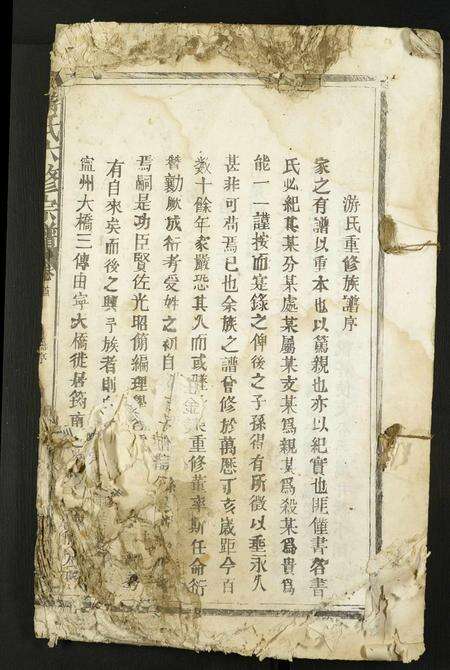 游氏重修族譜序
家之有譜以重本也以篤親也亦以紀實也匪僅書名書
氏必紀其某分某處某屬某支某爲親某爲殺某爲貴爲
能一一謹按而寔錄之俾後之子孫得有所徵以垂永久
甚非可苟焉已也余族之譜曾修於萬曆丁亥歲距今百
數十餘年家嚴恐其久而或 重修董率斯任命衍
贊勷厥成衍考受姓之初自
焉嗣是功臣賢佐光昭簡編理學
有自來矣而後之興予族者則
寍州大橋三傳由寜大橋徙居筠南
氏六修宗譜